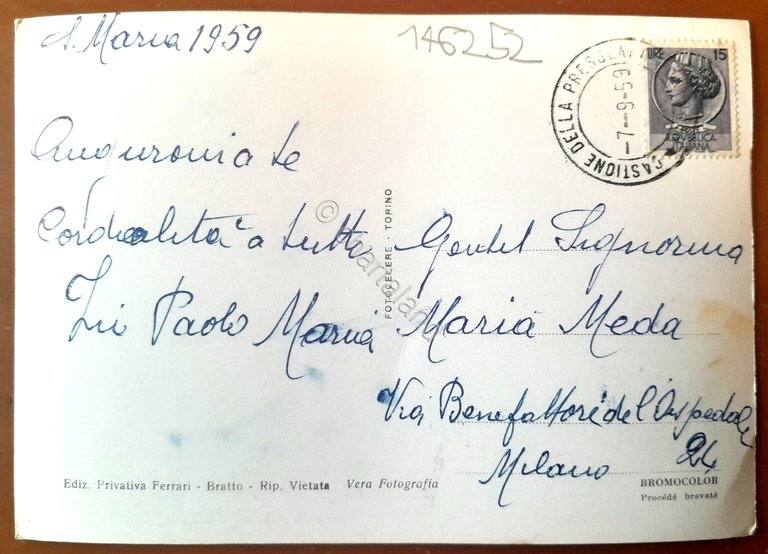 S. Maria 1959
146252
CASTIONE DELLA PRESOLANA
-7--9-59
LIRE 15
REPVBBLICA
ITALIANA
Auguronia te
Cordialità a tutti
Zii Paolo Maria
FOTOCELERE - TORINO
Gentil Signorina
Maria Meda
Via Benefattori dell'Ospedale
24
Milano
Ediz. Privativa Ferrari - Bratto - Rip. Vietata Vera Fotografia
BROMOCOLOR
Procédé breveté